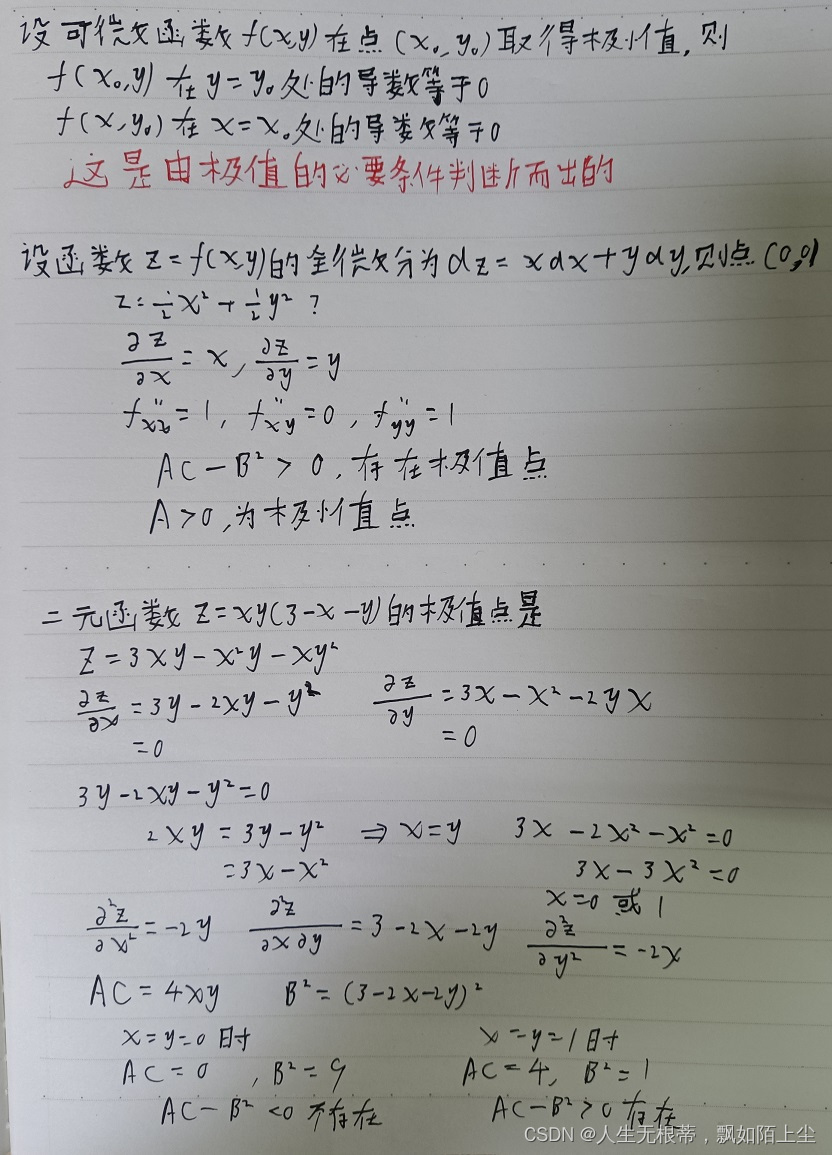 设可微女函数f(x,y)在点(x₀,y₀)取得极小值,则
f(x₀,y)在y=y₀处的导数等于0
f(x,y₀)在x=x₀处的导数等于0
这是由极值的必要条件判断而出的
设函数z=f(x,y)的全微分为dz=xdx+ydy,则点(0,0)
z=½x²+½y²?
∂z/∂x=x, ∂z/∂y=y
f″xx=1, f″xy=0, f″yy=1
AC-B²>0,存在极值点
A>0,为极小值点
二元函数z=xy(3-x-y)的极值点是
z=3xy-x²y-xy²
∂z/∂x=3y-2xy-y² ∂z/∂y=3x-x²-2yx
=0 =0
3y-2xy-y²=0
2xy=3y-y² ⇒x=y 3x-2x²-x²=0
=3x-x² 3x-3x²=0
x=0或1
∂²z/∂x²=-2y ∂²z/∂x∂y=3-2x-2y ∂²z/∂y²=-2x
AC=4xy B²=(3-2x-2y)²
x=y=0时 x=y=1时
AC=0,B²=9 AC=4, B²=1
AC-B²<0不存在 AC-B²>0存在
CSDN @人生无根蒂，飘如陌上尘